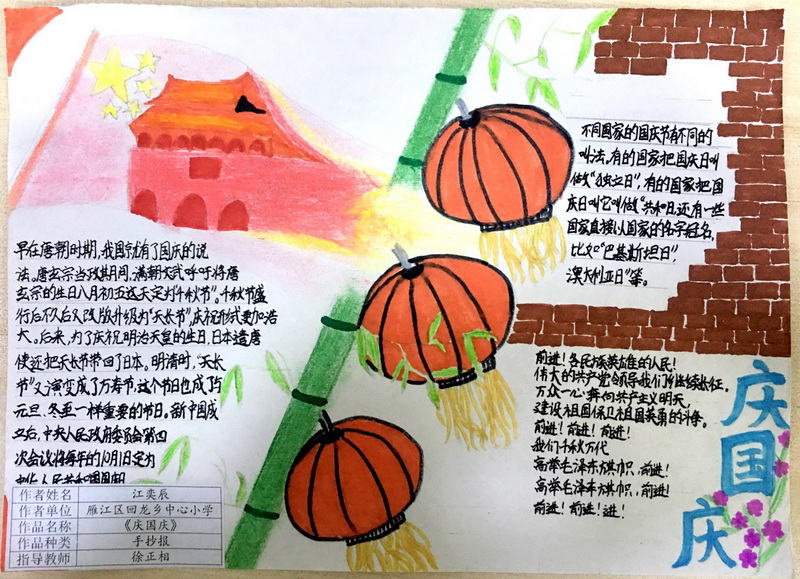 早在唐朝时期,我国就有了国庆的说
法。唐玄宗当政期间,满朝文武呼吁将唐
玄宗的生日八月初五这天定为"千秋节"。千秋节盛
行后不久后又改版升级为"天长节",庆祝形式更加浩
大。后来,为了庆祝明治天皇的生日,日本遣唐
使还把天长节带回了日本。明清时,"天长
节"又演变成了万寿节,这个节日也成了与
元旦、冬至一样重要的节日。新中国成
立后,中央人民政府委员会第四
次会议将每年的10月1日定为
作者姓名 江奕辰
作者单位 雁江区回龙乡中心小学
作品名称 《庆国庆》
作品种类 手抄报
指导教师 徐正相
不同国家的国庆节有不同的
叫法,有的国家把国庆日叫
做"独立日",有的国家把国
庆日叫它叫做"共和日,还有一些
国家直接以国家的名字冠名,
比如"巴基斯坦日",
澳大利亚日"等。
前进!各民族英雄的人民!
伟大的共产党领导我们继续长征。
万众一心奔向共产主义明天,
建设祖国保卫祖国英勇的斗争。
前进!前进!前进!
我们千秋万代
高举毛泽东旗帜,前进!
高举毛泽东旗帜,前进!
前进!前进!进!
庆国庆